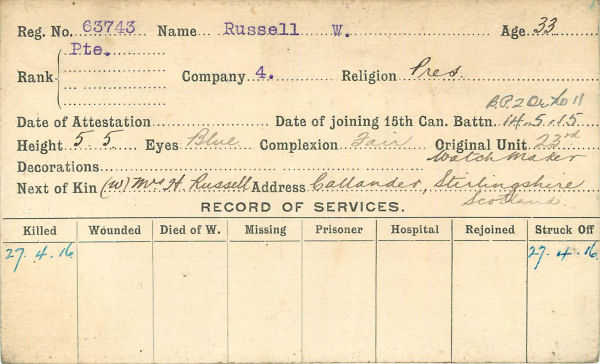 Reg. No. 63743 Name Russell W. Age 33
Pte.
Rank Company 4. Religion Pres
B.P. 2
Date of Attestation Date of joining 15th Can. Battn. 14.5.15
Height 5 5 Eyes Blue Complexion Fair Original Unit 23rd
Decorations Watch Maker
Next of Kin (W) Mrs H. Russell Address Callander, Stirlingshire
Scotland
RECORD OF SERVICES.
Killed Wounded Died of W. Missing Prisoner Hospital Rejoined Struck Off
27.4.16 27.4.16.